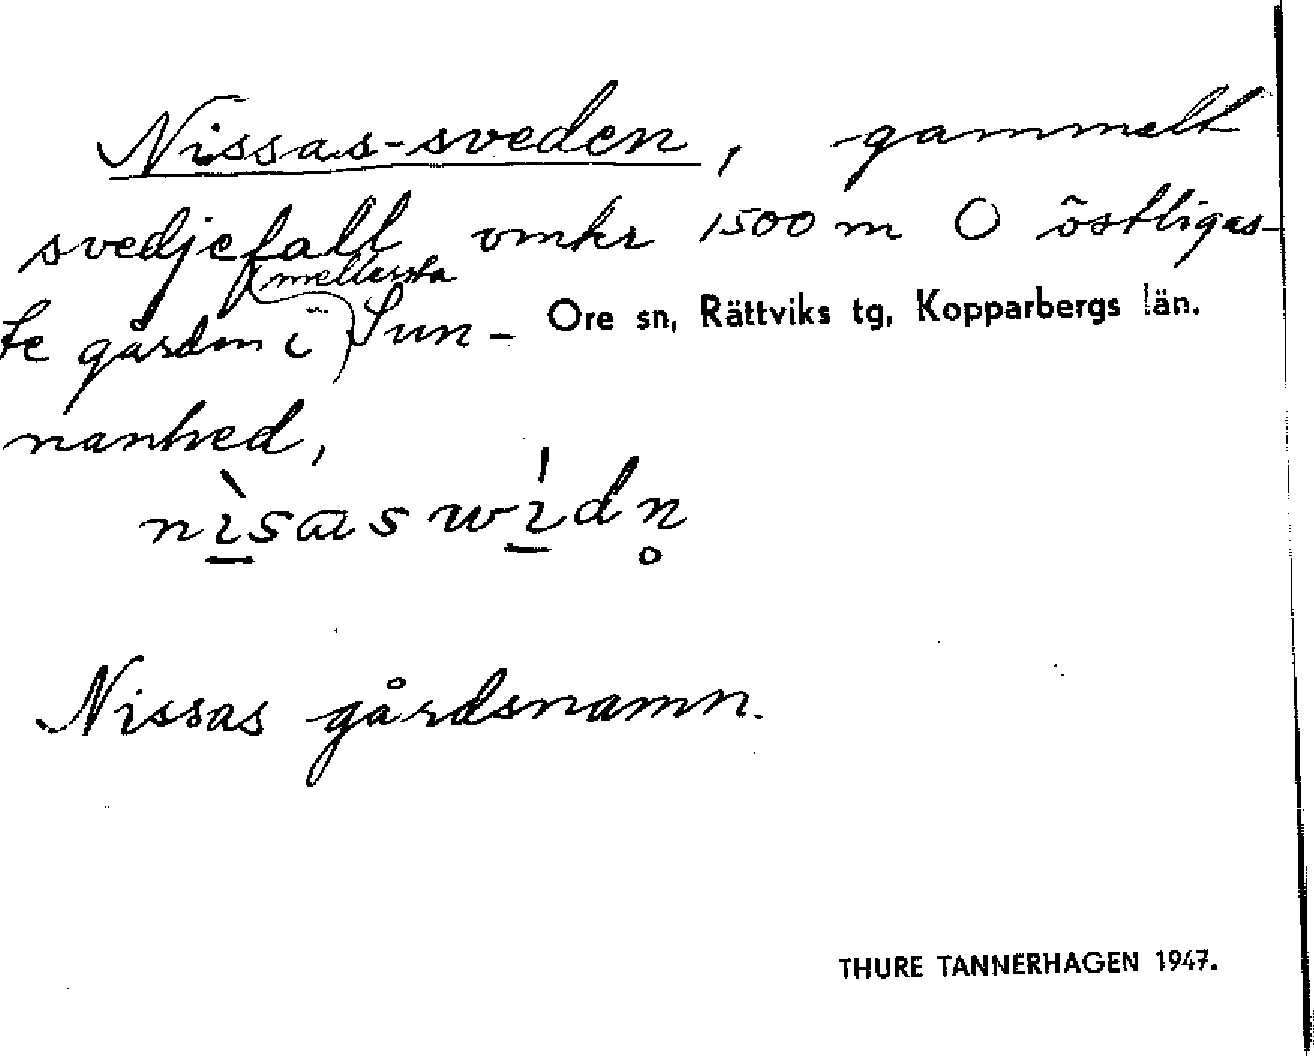 Nissas-sveden, gammelt
svedjefall omkr 1500 m O östligas-
mellersta
te gården i Sun-
Ore sn, Rättviks tg, Kopparbergs län.
nanhed,
nìsas wídn̥
Nissas gårdsnamn.
THURE TANNERHAGEN 1947.